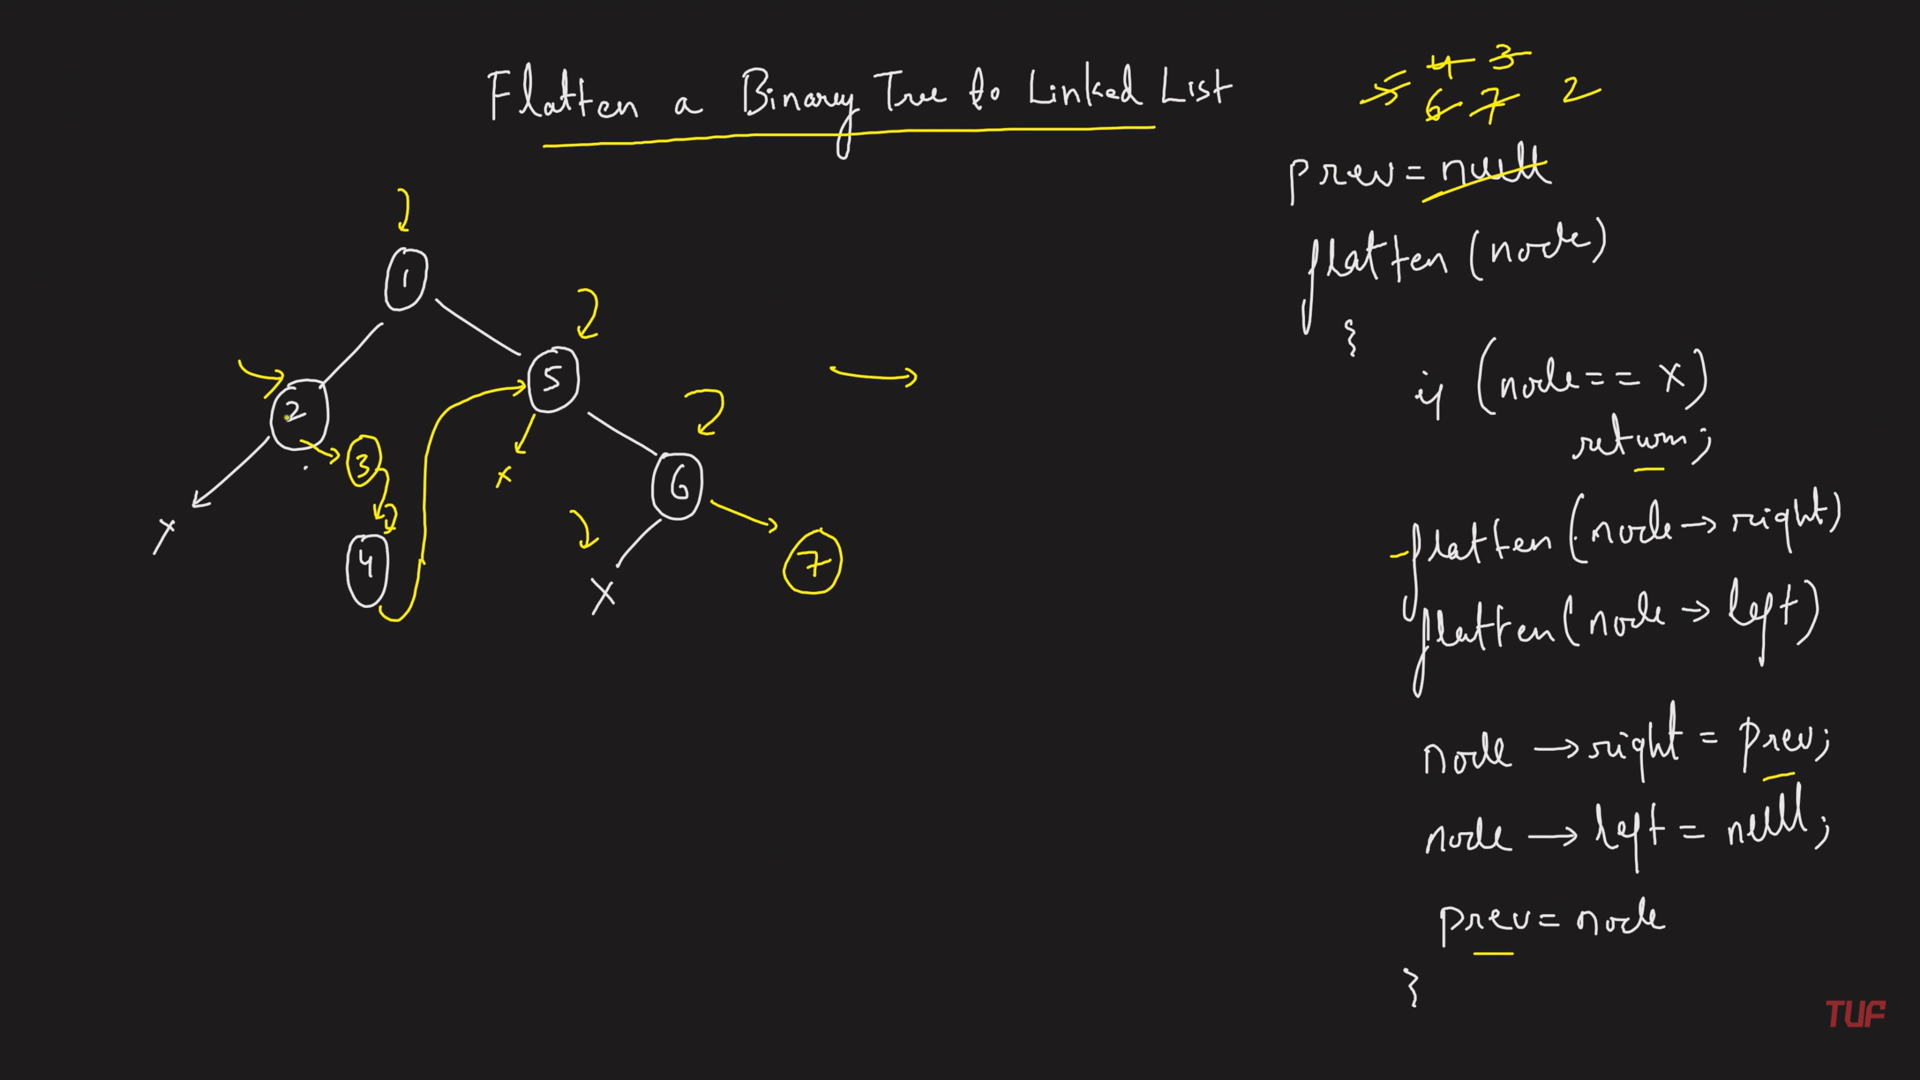 Flatten a Binary Tree to Linked List
5 4 3
6 7 2
prev = null
flatten (node)
{
if (node == x)
return;
flatten (node → right)
flatten (node → left)
node → right = prev;
node → left = null;
prev = node
}
1
2
5
3
x
6
x
4
x
7
TUF